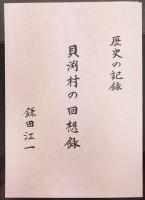 歴史の記録
貝渕村の回想録
鎌田江一